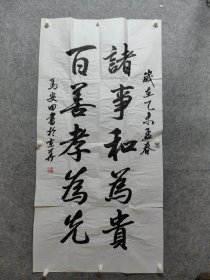 歲在乙未孟春
諸事和為貴
百善孝為先
馬安田書於京華